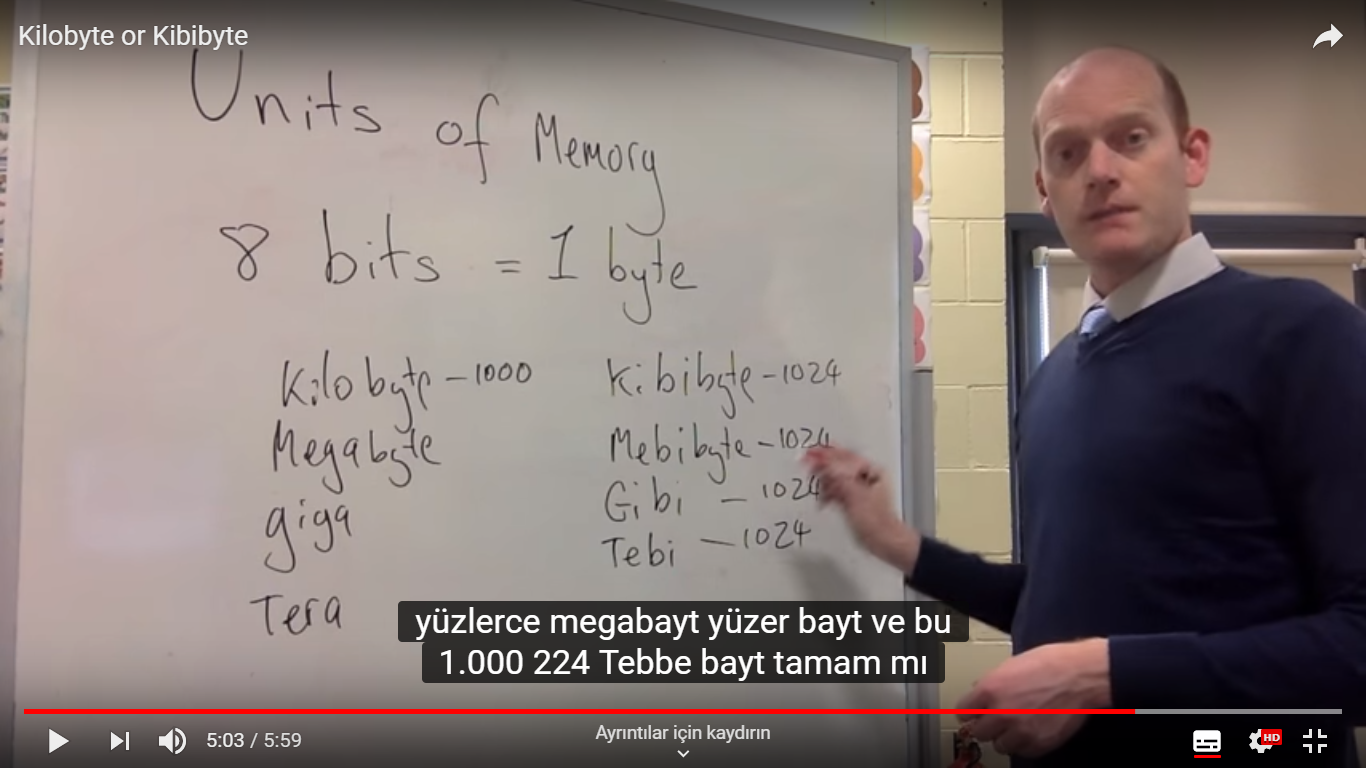 Kilobyte or Kibibyte
Units of Memory
8 bits = 1 byte
Kilobyte - 1000
Megabyte
giga
Tera
Kibibyte - 1024
Mebibyte - 1024
Gibi - 1024
Tebi - 1024
yüzlerce megabayt yüzer bayt ve bu
1.000 224 Tebbe bayt tamam mı
5:03 / 5:59
Ayrıntılar için kaydırın
HD